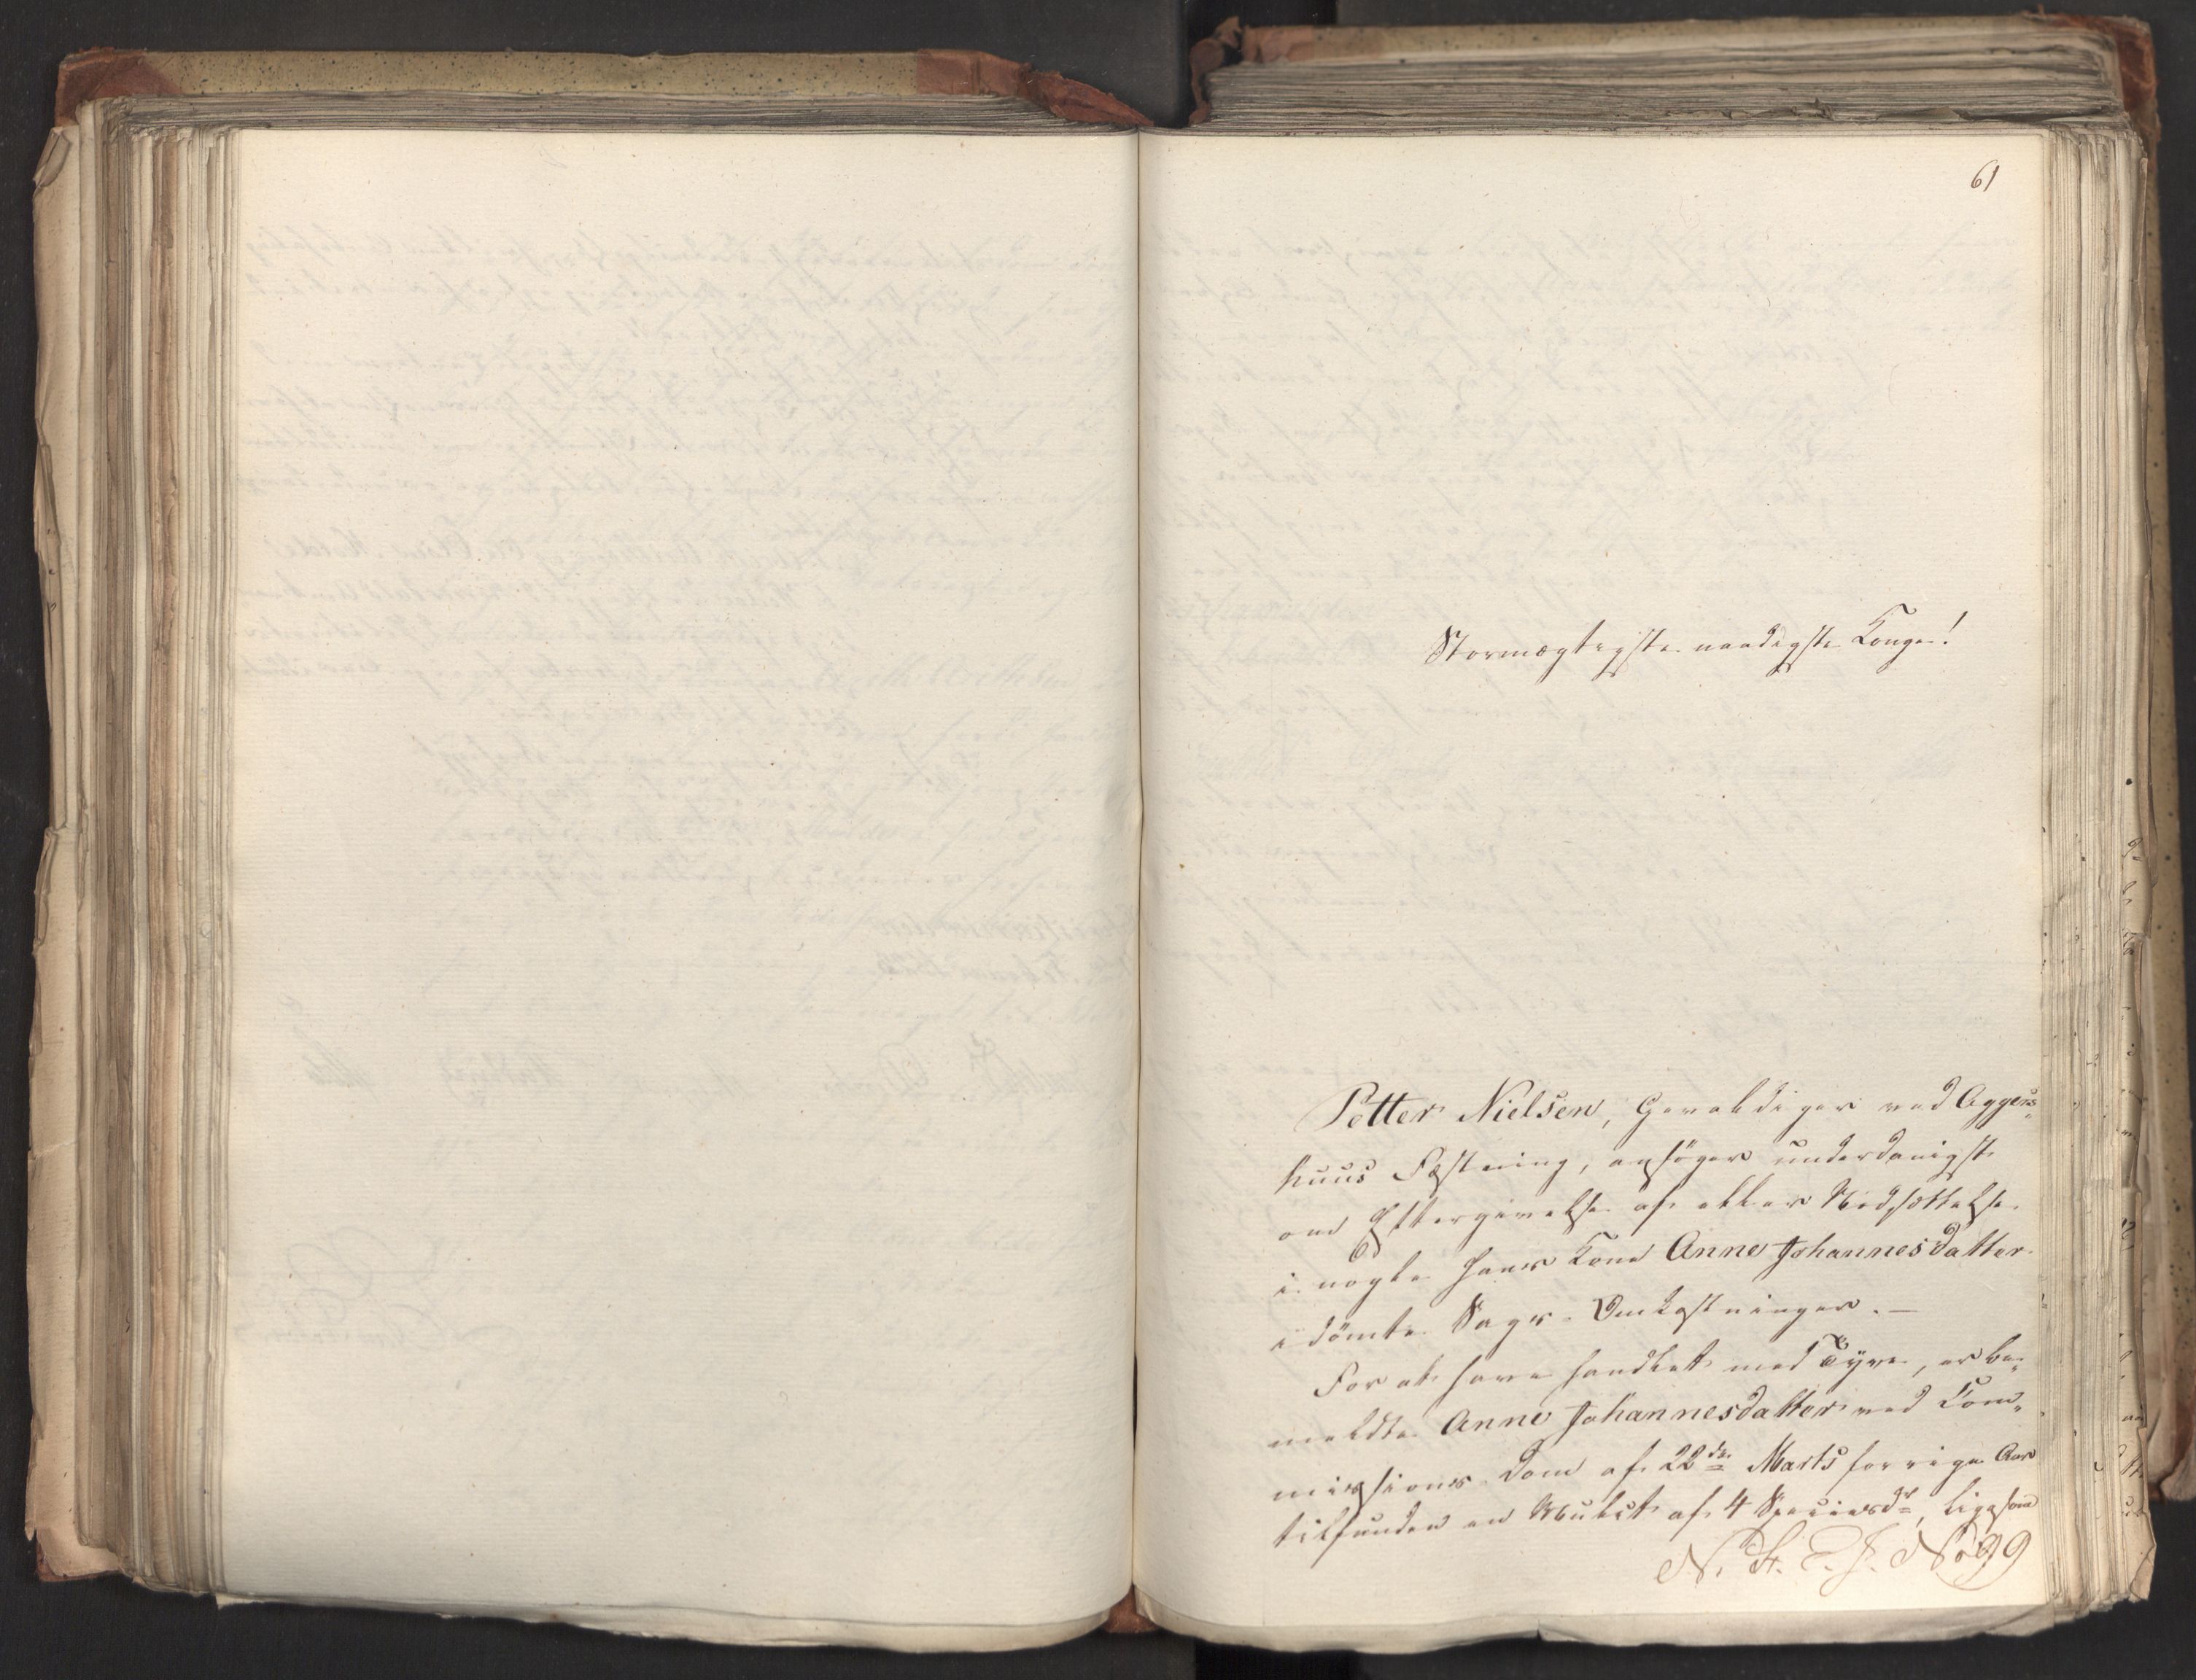 61
Stormægtigste naadigste Konge!
Petter Nielsen, Gevaldiger ved Aggers„
huus Fæstning, ansøger underdanigst
om Eftergivelse af eller Nedsættelse
i nogle hans Kone Anne Johannesdatter
idömte Sags-Omkostninger. —
For at have handlet med Tyve, er be„
meldte Anne Johannesdatter ved Com„
missions-Dom af 22de Marts forrige Aar
tilfunden en Mulct af 4 Speciesdr, ligesom
N. St. E. J. No 99